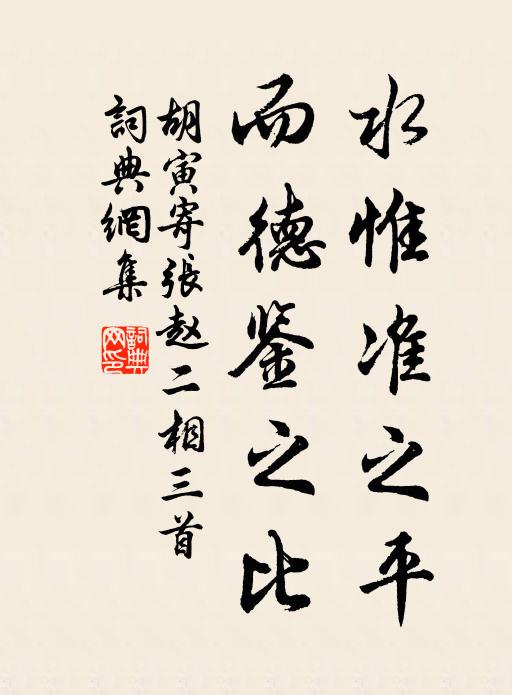 水惟准之平
而德鉴之比
胡寅寄張赵二相三首
詞典網集
詞典网印